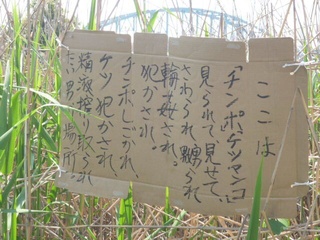 ここは
「チンポ、ケツマンコ」
見られて、見せて、
さわられ、嬲られ
輪姦され。
犯かされ、
チンポしごかれ、
ケツ犯かされ、
精液搾り取られ
たい男の場所